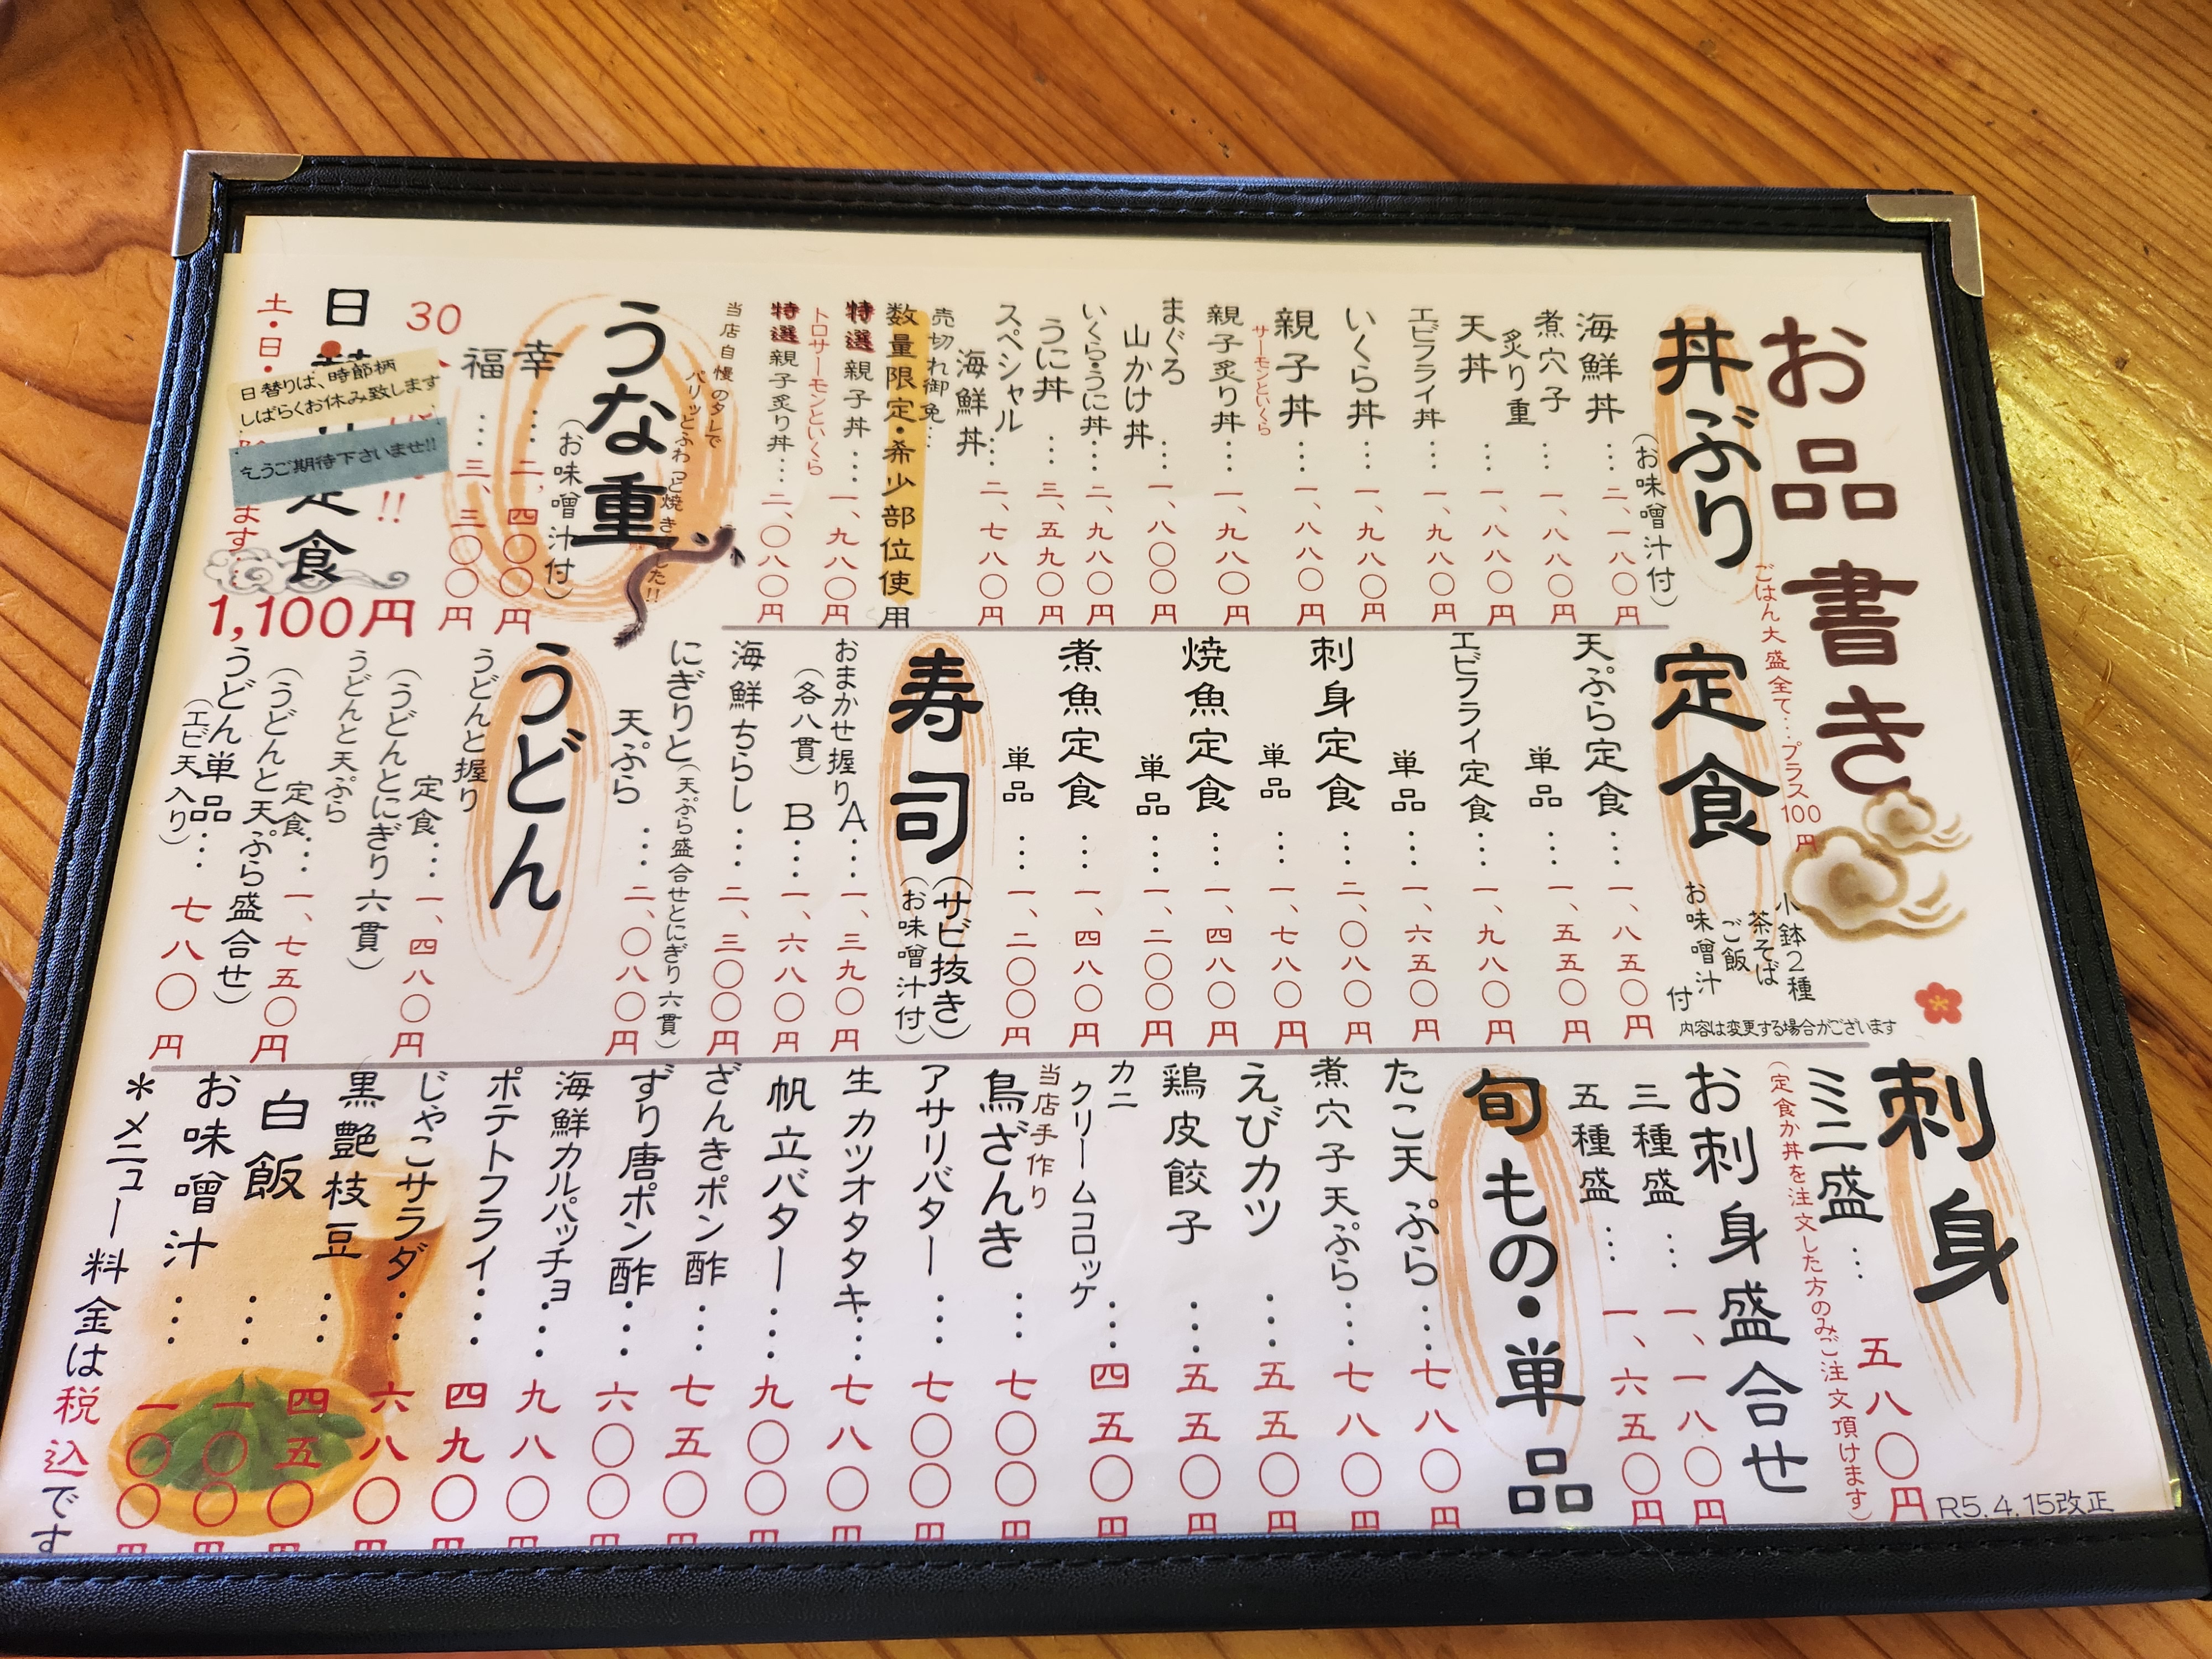 お品書き
ごはん大盛全て…プラス100円
丼ぶり
(お味噌汁付)
海鮮丼…二、一八〇円
煮穴子
炙り重…一、八八〇円
天丼…一、八八〇円
エビフライ丼…一、九八〇円
いくら丼…一、九八〇円
親子丼…一、八八〇円
サーモンといくら
親子炙り丼…一、九八〇円
まぐろ
山かけ丼…一、八〇〇円
いくら・うに丼…二、九八〇円
うに丼…三、五九〇円
スペシャル
海鮮丼…二、七八〇円
売切れ御免…
数量限定・希少部位使用
特選親子丼…一、九八〇円
トロサーモンといくら
特選親子炙り丼…二、〇八〇円
当店自慢のタレで
パリッとふわっと焼きました!!
うな重
(お味噌汁付)
幸…二、四〇〇円
福…三、三〇〇円
30
!!
日
定食
土・日・
ます…
1,100円
日替りは、時節柄
しばらくお休み致します
乞うご期待下さいませ!!
定食
小鉢2種
茶そば
ご飯
お味噌汁
付
内容は変更する場合がございます
天ぷら定食…一、八五〇円
単品…一、五五〇円
エビフライ定食…一、九八〇円
単品…一、六五〇円
刺身定食…二、〇八〇円
単品…一、七八〇円
焼魚定食…一、四八〇円
単品…一、二〇〇円
煮魚定食…一、四八〇円
単品…一、二〇〇円
寿司
(サビ抜き)
(お味噌汁付)
おまかせ握りA…一、三九〇円
(各八貫)B…一、六八〇円
海鮮ちらし…二、三〇〇円
にぎりと(天ぷら盛合せとにぎり六貫)
天ぷら…二、〇八〇円
うどん
うどんと握り
定食…一、四八〇円
(うどんとにぎり六貫)
うどんと天ぷら
定食…一、七五〇円
(うどんと天ぷら盛合せ)
うどん単品…七八〇円
(エビ天入り)
刺身
ミニ盛…五八〇円
(定食か丼を注文した方のみご注文頂けます)
お刺身盛合せ
三種盛…一、一八〇円
五種盛…一、六五〇円
旬もの・単品
たこ天ぷら…七八〇円
煮穴子天ぷら…七八〇円
えびカツ…五五〇円
鶏皮餃子…五五〇円
カニ
クリームコロッケ…四五〇円
当店手作り
鳥ざんき…七〇〇円
アサリバター…七〇〇円
生カツオタタキ…七八〇円
帆立バター…九〇〇円
ざんきポン酢…七五〇円
ずり唐ポン酢…六〇〇円
海鮮カルパッチョ…九八〇円
ポテトフライ…四九〇円
じゃこサラダ…六八〇円
黒艶枝豆…四五〇円
白飯…一〇〇円
お味噌汁…一〇〇円
*メニュー料金は税込です
R5.4.15改正